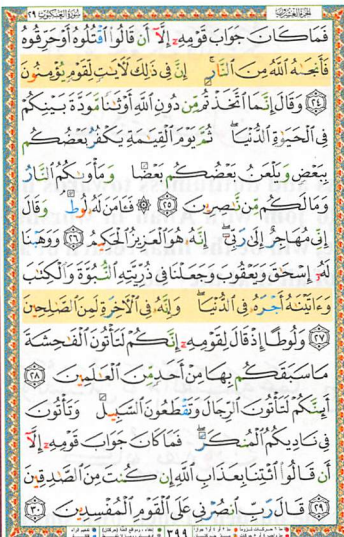 سورة العنكبوت ٢٩ الجزء العشرون
فَمَا كَانَ جَوَابَ قَوْمِهِۦٓ إِلَّآ أَن قَالُوا۟ ٱقْتُلُوهُ أَوْ حَرِّقُوهُ
فَأَنجَىٰهُ ٱللَّهُ مِنَ ٱلنَّارِ ۚ إِنَّ فِى ذَٰلِكَ لَـَٔايَـٰتٍ لِّقَوْمٍ يُؤْمِنُونَ
﴿٢٤﴾ وَقَالَ إِنَّمَا ٱتَّخَذْتُم مِّن دُونِ ٱللَّهِ أَوْثَـٰنًا مَّوَدَّةَ بَيْنِكُمْ
فِى ٱلْحَيَوٰةِ ٱلدُّنْيَا ۖ ثُمَّ يَوْمَ ٱلْقِيَـٰمَةِ يَكْفُرُ بَعْضُكُم
بِبَعْضٍ وَيَلْعَنُ بَعْضُكُم بَعْضًا وَمَأْوَىٰكُمُ ٱلنَّارُ
وَمَا لَكُم مِّن نَّـٰصِرِينَ ﴿٢٥﴾ ۞ فَـَٔامَنَ لَهُۥ لُوطٌ ۘ وَقَالَ
إِنِّى مُهَاجِرٌ إِلَىٰ رَبِّىٓ ۖ إِنَّهُۥ هُوَ ٱلْعَزِيزُ ٱلْحَكِيمُ ﴿٢٦﴾ وَوَهَبْنَا
لَهُۥٓ إِسْحَـٰقَ وَيَعْقُوبَ وَجَعَلْنَا فِى ذُرِّيَّتِهِ ٱلنُّبُوَّةَ وَٱلْكِتَـٰبَ
وَءَاتَيْنَـٰهُ أَجْرَهُۥ فِى ٱلدُّنْيَا ۖ وَإِنَّهُۥ فِى ٱلْـَٔاخِرَةِ لَمِنَ ٱلصَّـٰلِحِينَ
﴿٢٧﴾ وَلُوطًا إِذْ قَالَ لِقَوْمِهِۦٓ إِنَّكُمْ لَتَأْتُونَ ٱلْفَـٰحِشَةَ
مَا سَبَقَكُم بِهَا مِنْ أَحَدٍ مِّنَ ٱلْعَـٰلَمِينَ ﴿٢٨﴾
أَئِنَّكُمْ لَتَأْتُونَ ٱلرِّجَالَ وَتَقْطَعُونَ ٱلسَّبِيلَ وَتَأْتُونَ
فِى نَادِيكُمُ ٱلْمُنكَرَ ۖ فَمَا كَانَ جَوَابَ قَوْمِهِۦٓ إِلَّآ
أَن قَالُوا۟ ٱئْتِنَا بِعَذَابِ ٱللَّهِ إِن كُنتَ مِنَ ٱلصَّـٰدِقِينَ
﴿٢٩﴾ قَالَ رَبِّ ٱنصُرْنِى عَلَى ٱلْقَوْمِ ٱلْمُفْسِدِينَ ﴿٣٠﴾
٣٩٩